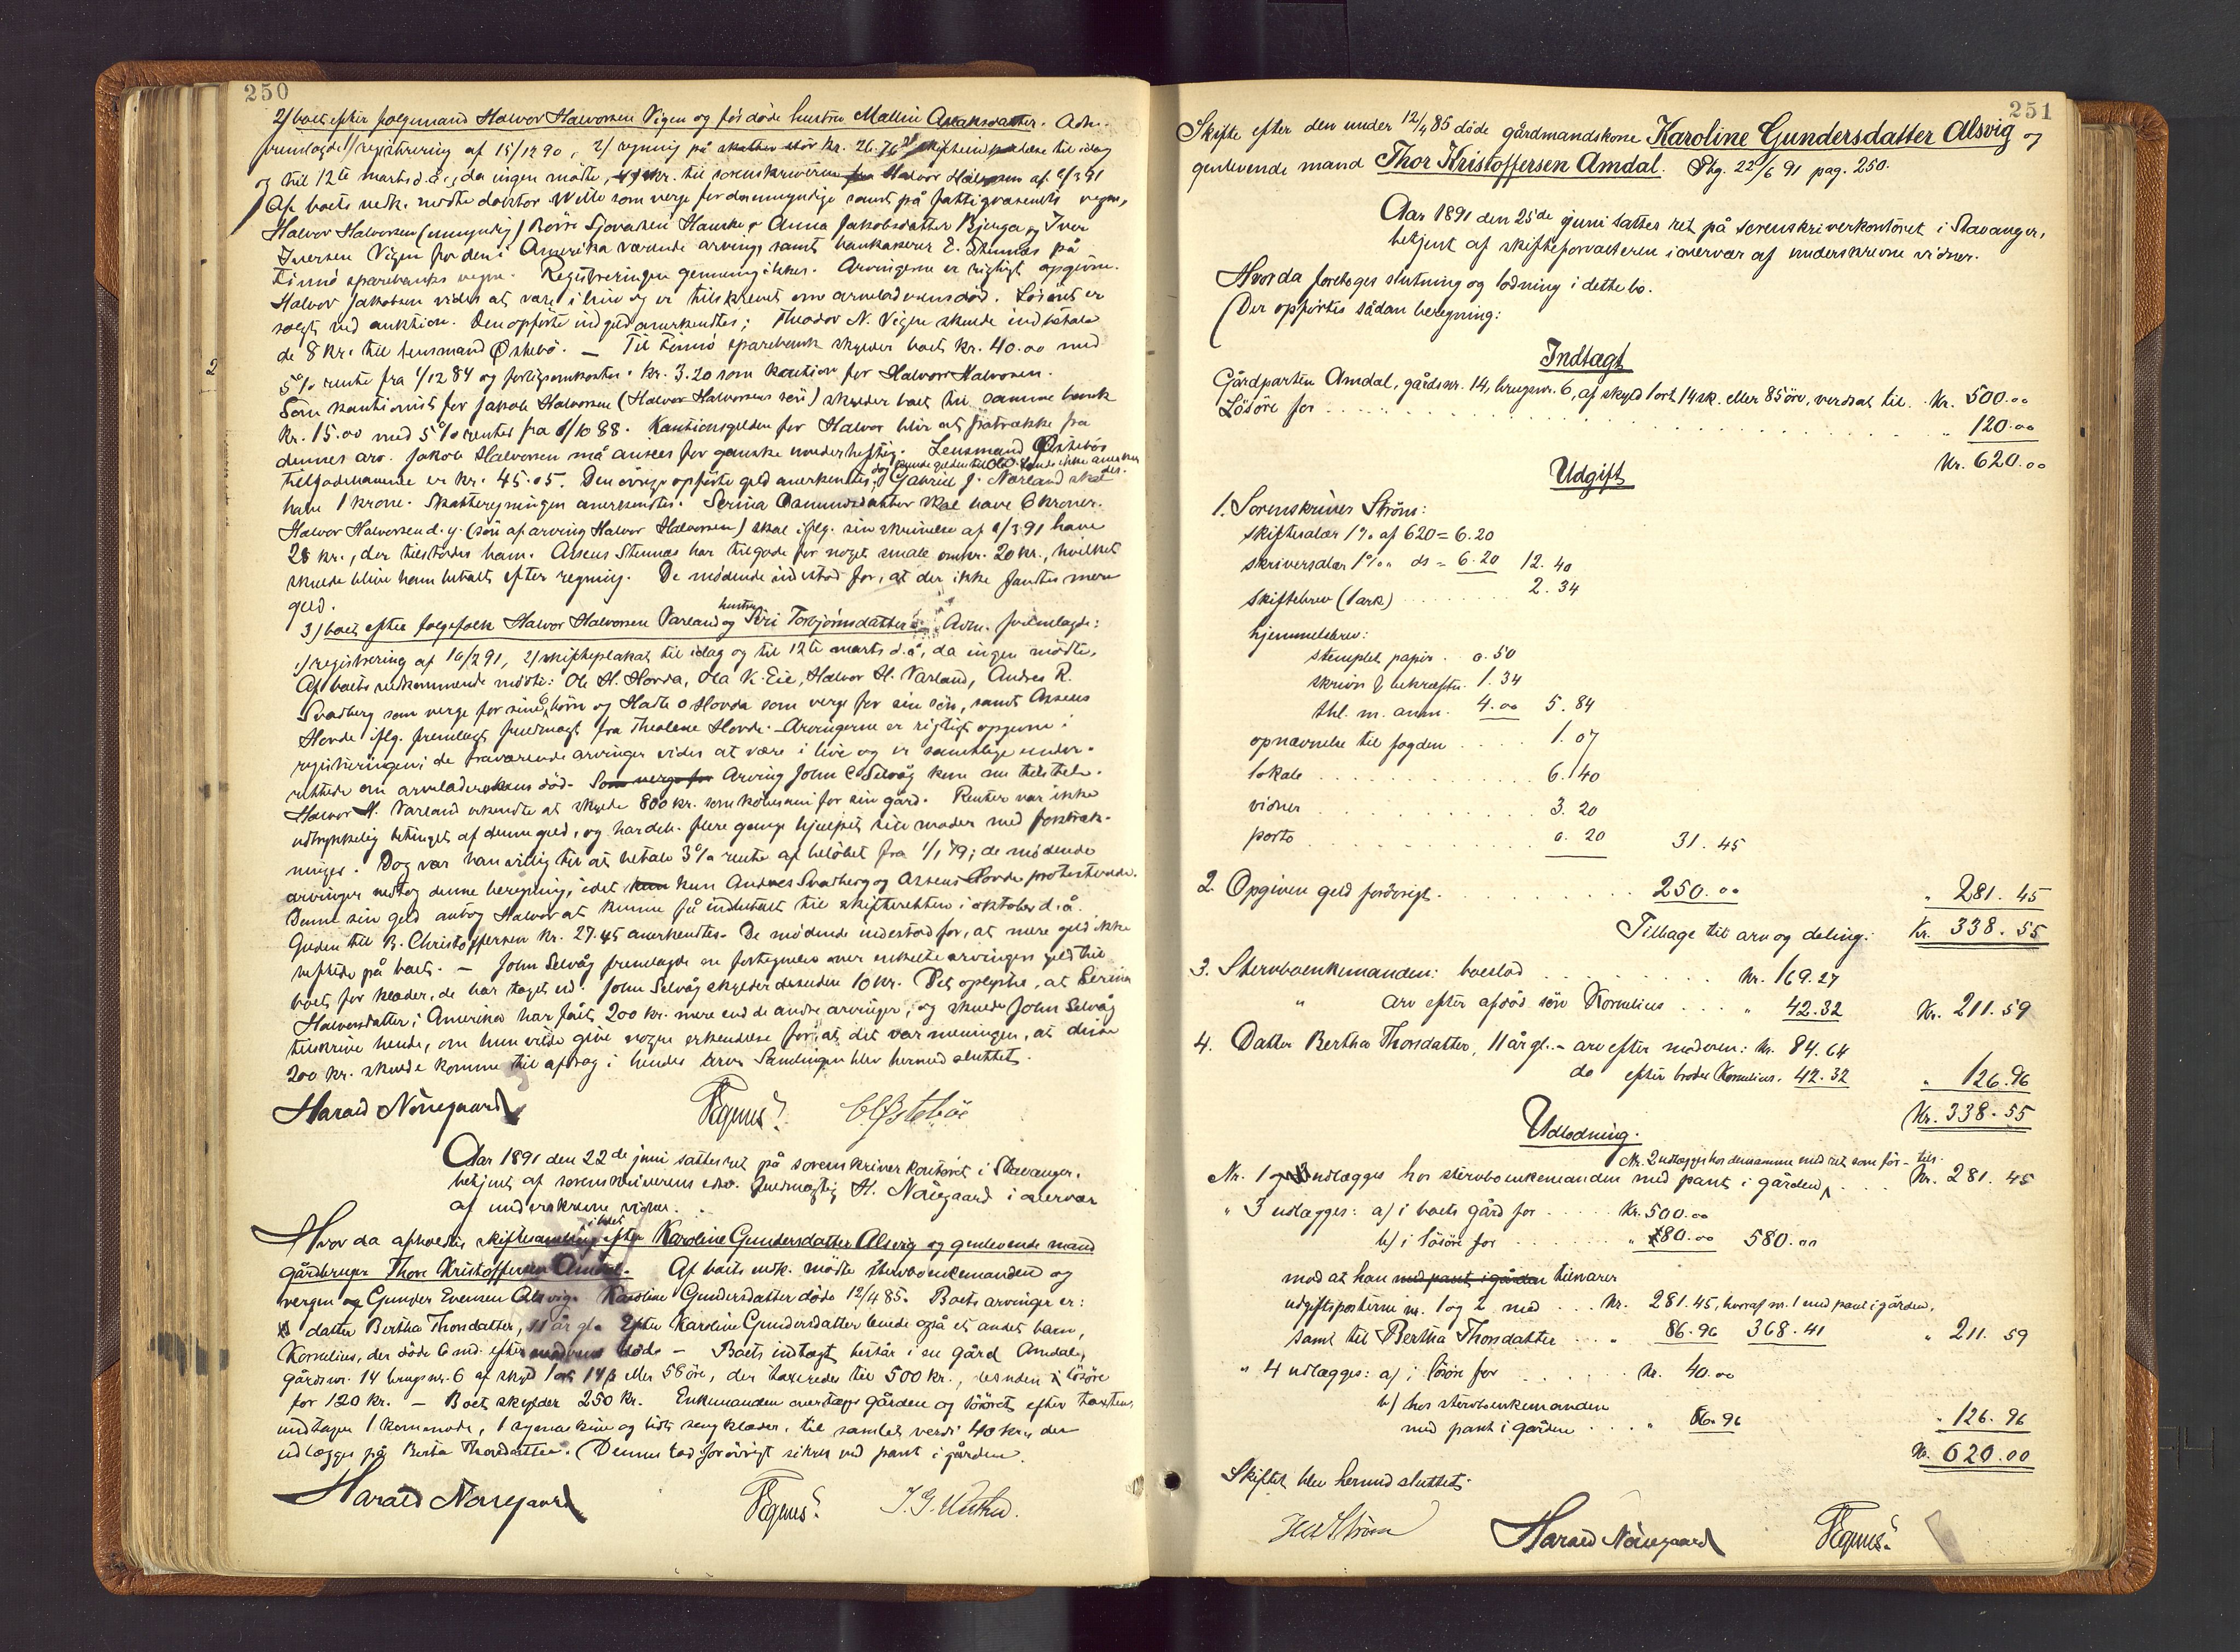 250
2) boet efter folgemand Halvor Halvorsen Vigen og før døde hustru Mallin Asaksdatter. Adm.
fremlagde 1) registrering af 15/12 90, 2) regning på skatter stór kr. 26.76 til idag
og til 12te marts d.å., da ingen mødte, til sorenskriveren fra Halvor Halvorsen af 9/3 91
Af boets vedk. mødte doktor Wille som verge for de umyndige samt på fattigvæsenets vegne,
Halvor Halvorsen (umyndig) Anna Jakobsdatter Bjerga og Iver
Iversen Vigen for den i Amerika værende arving, samt bankkasserer E. Stennæs på
Finnø sparebanks vegne. Registreringen gjennemgikkes. Arvingerne er rigtigt opgivne.
Halvor Jakobsen vides at være i live og er tilskrevet om arveladerens død. Løsøret er
solgt ved auktion. Den opførte indgjeld anerkjendtes; Theodor N. Vigen skulde indbetale
de 8 kr. til lensmand Østebö. — Til Finnö sparebank skylder boet kr. 40.00 med
5% rente fra 1/12 84 og forligsomkostn. kr. 3.20 som kaution for Halvor Halvorsen.
Som kautionist for Jakob Halvorsen (Halvor Halvorsens søn) skylder boet til samme bank
kr. 15.00 med 5% renter fra 8/10 88. Kautionsgjelden for Halvor blir at fratrække fra
dennes arv. Jakob Halvorsen må ansees for ganske uvederhæftig. Lensmand Østebös
tilgodehavende er kr. 45.05. Den øvrige opførte gjeld anerkjendtes, Gabriel J. Narland skal
have 1 krone. Skatteregningen anerkjendtes. Serina Osmundsdatter skal have 6 kroner.
Halvor Halvorsen d.y. (søn af arving Halvor Halvorsen) skal iflg. sin skrivelse af 9/3 91 have
28 kr., der tilstodes ham. Asseus Stennæs har tilgode for noget smale omkr. 20 kr., hvilket
skulde blive ham betalt efter regning. De mødende indestod for, at der ikke fandtes mere
gjeld.
3) boet efter folgefolk Halvor Halvorsen Varland og hustru Siri Torbjørnsdatter. Adm. fremlagde:
1) registrering af 16/2 91, 2) skifteplakat til idag og til 12te marts d.å., da ingen mødte.
Af boets vedkommende mødte: Ole H. Hovda, Ola K. Eie, Halvor H. Varland, Andres R.
Svadberg som verge for sine 6 børn og Hadle O Hovda som verge for sin søn, samt Asseus
Hovde iflg. fremlagt fuldmagt fra Theolene Hovde. Arvingerne er rigtigt opgivne i
registreringen; de fraværende arvinger vides at være i live og er samtlige under-
rettede om arveladerskens død. Som verge for Arving John C Selvåg kom nu tilstede.
Halvor H. Varland erkjendte at skylde 800 kr. som kjøbesum for sin gård. Renter var ikke
udtrykkelig betinget af denne gjeld, og har deh. flere gange hjulpet sine moder med forstræk-
ninger. Dog var han villig til at betale 3% rente af beløbet fra 1/1 79; de mødende
arvinger vedtog denne beregning, idet kun kun Andres Svadberg og Asseus Hovde protesterede.
Denne sin gjeld antog Halvor at kunne få indbetalt til skifteretten i oktober d.å.
Gjelden til B. Christoffersen kr. 27.45 anerkjendtes. De mødende indestod for, at mere gjeld ikke
heftede på boet. — John Selvåg fremlagde en fortegnelse over enkelte arvingers gjeld til
boet for klæder, de har taget ud. John Selvåg skylder desuden 10 kr. Det oplystes, at Serina
Halvorsdatter i Amerika har fået 200 kr. mere end de andre arvinger, og skulde John Selvåg
tilskrive hende, om hun vilde give nogen erkjendelse for, at det var meningen, at disse
200 kr. skulde komme til afdrag i hendes arv. Samlingen blev hermed sluttet.
Harald Nörregaard
Aar 1891 den 22de juni sattes ret på sorenskriverkontoret i Stavanger,
betjent af sorenskriverens edsv. fuldmægtig H. Nörregaard i overvær
af underskrevne vidner.
Hvor da afholdtes skiftesamling i boet efter Karoline Gundersdatter Alsvig og gjenlevende mand
gårdbruger Thor Kristoffersen Amdal. Af boets vedk. mødte stervboenkemanden og
vergen og Gunder Evensen Alsvig. Karoline Gundersdatter døde 12/4 85. Boets arvinger er:
datter Bertha Thorsdatter, 11 år gl. Efter Karoline Gundersdatter levede også et andet barn,
Kornelius, der døde 6 md. efter moderens døde — Boets indtægt består i en gård Amdal,
gårdsnr. 14 brugsnr. 6 af skyld 1 ort 14 β eller 58 øre, der taxeredes til 500 kr., desuden i løsøre
for 120 kr. — Boet skylder 250 kr. Enkemanden overtager gården og løsøret efter taxten,
undtagen 1 kommode, 1 symaskine og lidt sengklæder, til samlet verdi 40 kr., der
udlægges på Berta Thorsdatter. (Dennes lod forøvrigt sikres ved pant i gården.
Harald Nörregaard
251
Skifte efter den under 12/4 85 døde gårdmandskone Karoline Gundersdatter Alsvig og
gjenlevende mand Thor Kristoffersen Amdal. Fhg. 22/6 91 pag. 250.
Aar 1891 den 25de juni sattes ret på Sorenskriverkontoret i Stavanger,
betjent af skifteforvalteren i overvær af underskrevne vidner.
Hvor da foretoges slutning og lodning i dette bo.
(Der opførtes sådan beregning:
Indtægt
Gårdparten Amdal, gårdsnr. 14, brugsnr. 6, af skyld 1 ort 14 sk. eller 85 öre, verdsat til . Kr. 500.00
Lösöre for . . . . " 120.00
Kr. 620.00
Udgift
1. Sorenskriver Ström:
skiftesalær 1% af 620 = 6.20
skriversalær 1% " ds = 6.20 12.40
skiftebrev (1 ark) . . . . 2.34
hjemmelsbrev:
stemplet papir . 0.50
skrivn & bekræftn. 1.34
thl. m. anm. 4.00 5.84
opnævnelse til fogden . . . . 1.07
lokale . . . . 6.40
vidner . . . . 3.20
porto . . . . 0.20 31.45
2. Opgiven gjeld forövrigt . . . . 250.00 " 281.45
Tilbage til arv og deling: Kr. 338.55
3. Stervboenkemanden: boeslod . . . . Kr. 169.27
" arv efter afdöd sön Kornelius . . . " 42.32 Kr. 211.59
4. Datter Bertha Thorsdatter, 11 år gl. - arv efter moderen: Kr. 84.64
do efter broder Kornelius. 42.32 " 126.96
Kr. 338.55
Udlodning.
Nr. 2 udlægges hos densamme med ret som för - tils.
Nr. 1 og 2 udlægges hos stervboenkemanden med pant i gården, . . . Kr. 281.45
" 3 udlægges: a) i boets gård for . . . . Kr. 500.00
b) i lösöre for . . . . " 80.00 580.00
mod at han med pant i gården tilsvarer
udgiftsposterne nr. 1 og 2 med . . . Kr. 281.45, hvoraf nr. 1 med pant i gården,
samt til Bertha Thorsdatter . . . " 86.96 368.41 " 211.59
" 4 udlægges: a) i lösöre for . . . . Kr. 40.00
b) hos stervboenkemanden
med pant i gården . . . . " 86.96 " 126.96
Kr. 620.00
Skiftet blev hermed sluttet.
Ström Harald Nörregaard